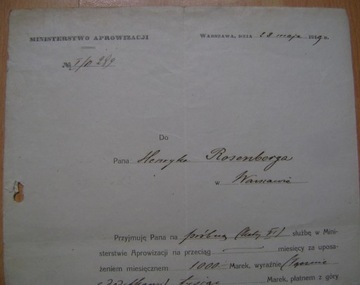 MINISTERSTWO APROWIZACJI
WARSZAWA, DNIA 28 maja 1919 r.
№
Do
Pana Henryka Rosenberga
w Warszawie
Przyjmuję Pana na próbną służbę w Mini-
sterstwie Aprowizacji na przeciąg miesięcy za uposa-
żeniem miesięcznem 1000 Marek, wyraźnie
Marek, płatnem z góry